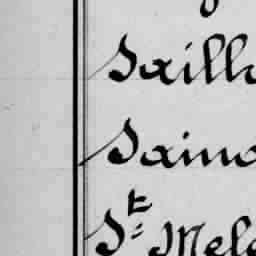 Saill
Sain
St Mel